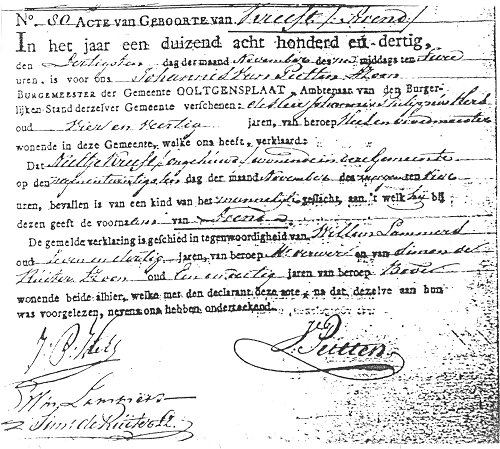 N.º 80 ACTE VAN GEBOORTE VAN Kreeft /: Arend :/
In het jaar een duizend acht honderd en dertig,
den Dertigsten dag der maand November des middags ten
uren, is voor ons Johannis van Putten
BURGEMEESTER der Gemeente OOLTGENSPLAAT, Ambtenaar van den Burger-
lijken Stand derzelver Gemeente verschenen: de Heer Johannis
oud Vier en Veertig jaren, van beroep Heel en vroedmeester
wonende in deze Gemeente, welke ons heeft verklaard:
Dat Neeltje Kreeft, ongehuwd, wonende in deze Gemeente
op den Negenentwintigsten der maand November des ten
uren, bevallen is van een kind van het mannelijk geslacht, aan 't welk hij bij
dezen geeft de voornaam van Arend
De gemelde verklaring is geschied in tegenwoordigheid van Willem Lammers
oud Zeven en dertig jaren, van beroep en van Simon de
Ruiter Zoon oud Een en dertig jaren van beroep Bode
wonende beide alhier, welke met den declarant deze acte, na dat dezelve aan hun
was voorgelezen, nevens ons hebben onderteekend.
Putten
Wm Lammers
Sim: de Ruiter